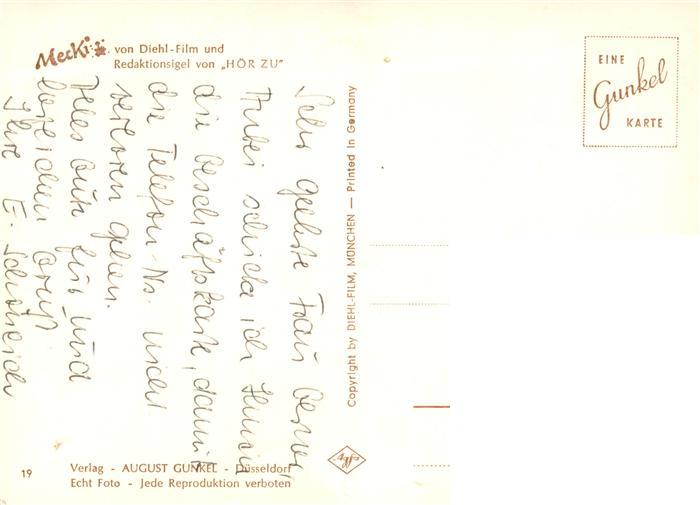 Mecki von Diehl-Film und
Redaktionsigel von „HÖR ZU"
EINE
Gunkel
KARTE
Sehr geehrte Frau
Anbei schicke ich Ihnen
die Geschäftskarte, damit
die Telefon-Nr. nicht
verloren gehen.
Alles Gute für und
herzlichen Gruß
Ihre E.
Copyright by DIEHL-FILM, MÜNCHEN — Printed in Germany
Agfa
19
Verlag - AUGUST GUNKEL - Düsseldorf
Echt Foto - Jede Reproduktion verboten